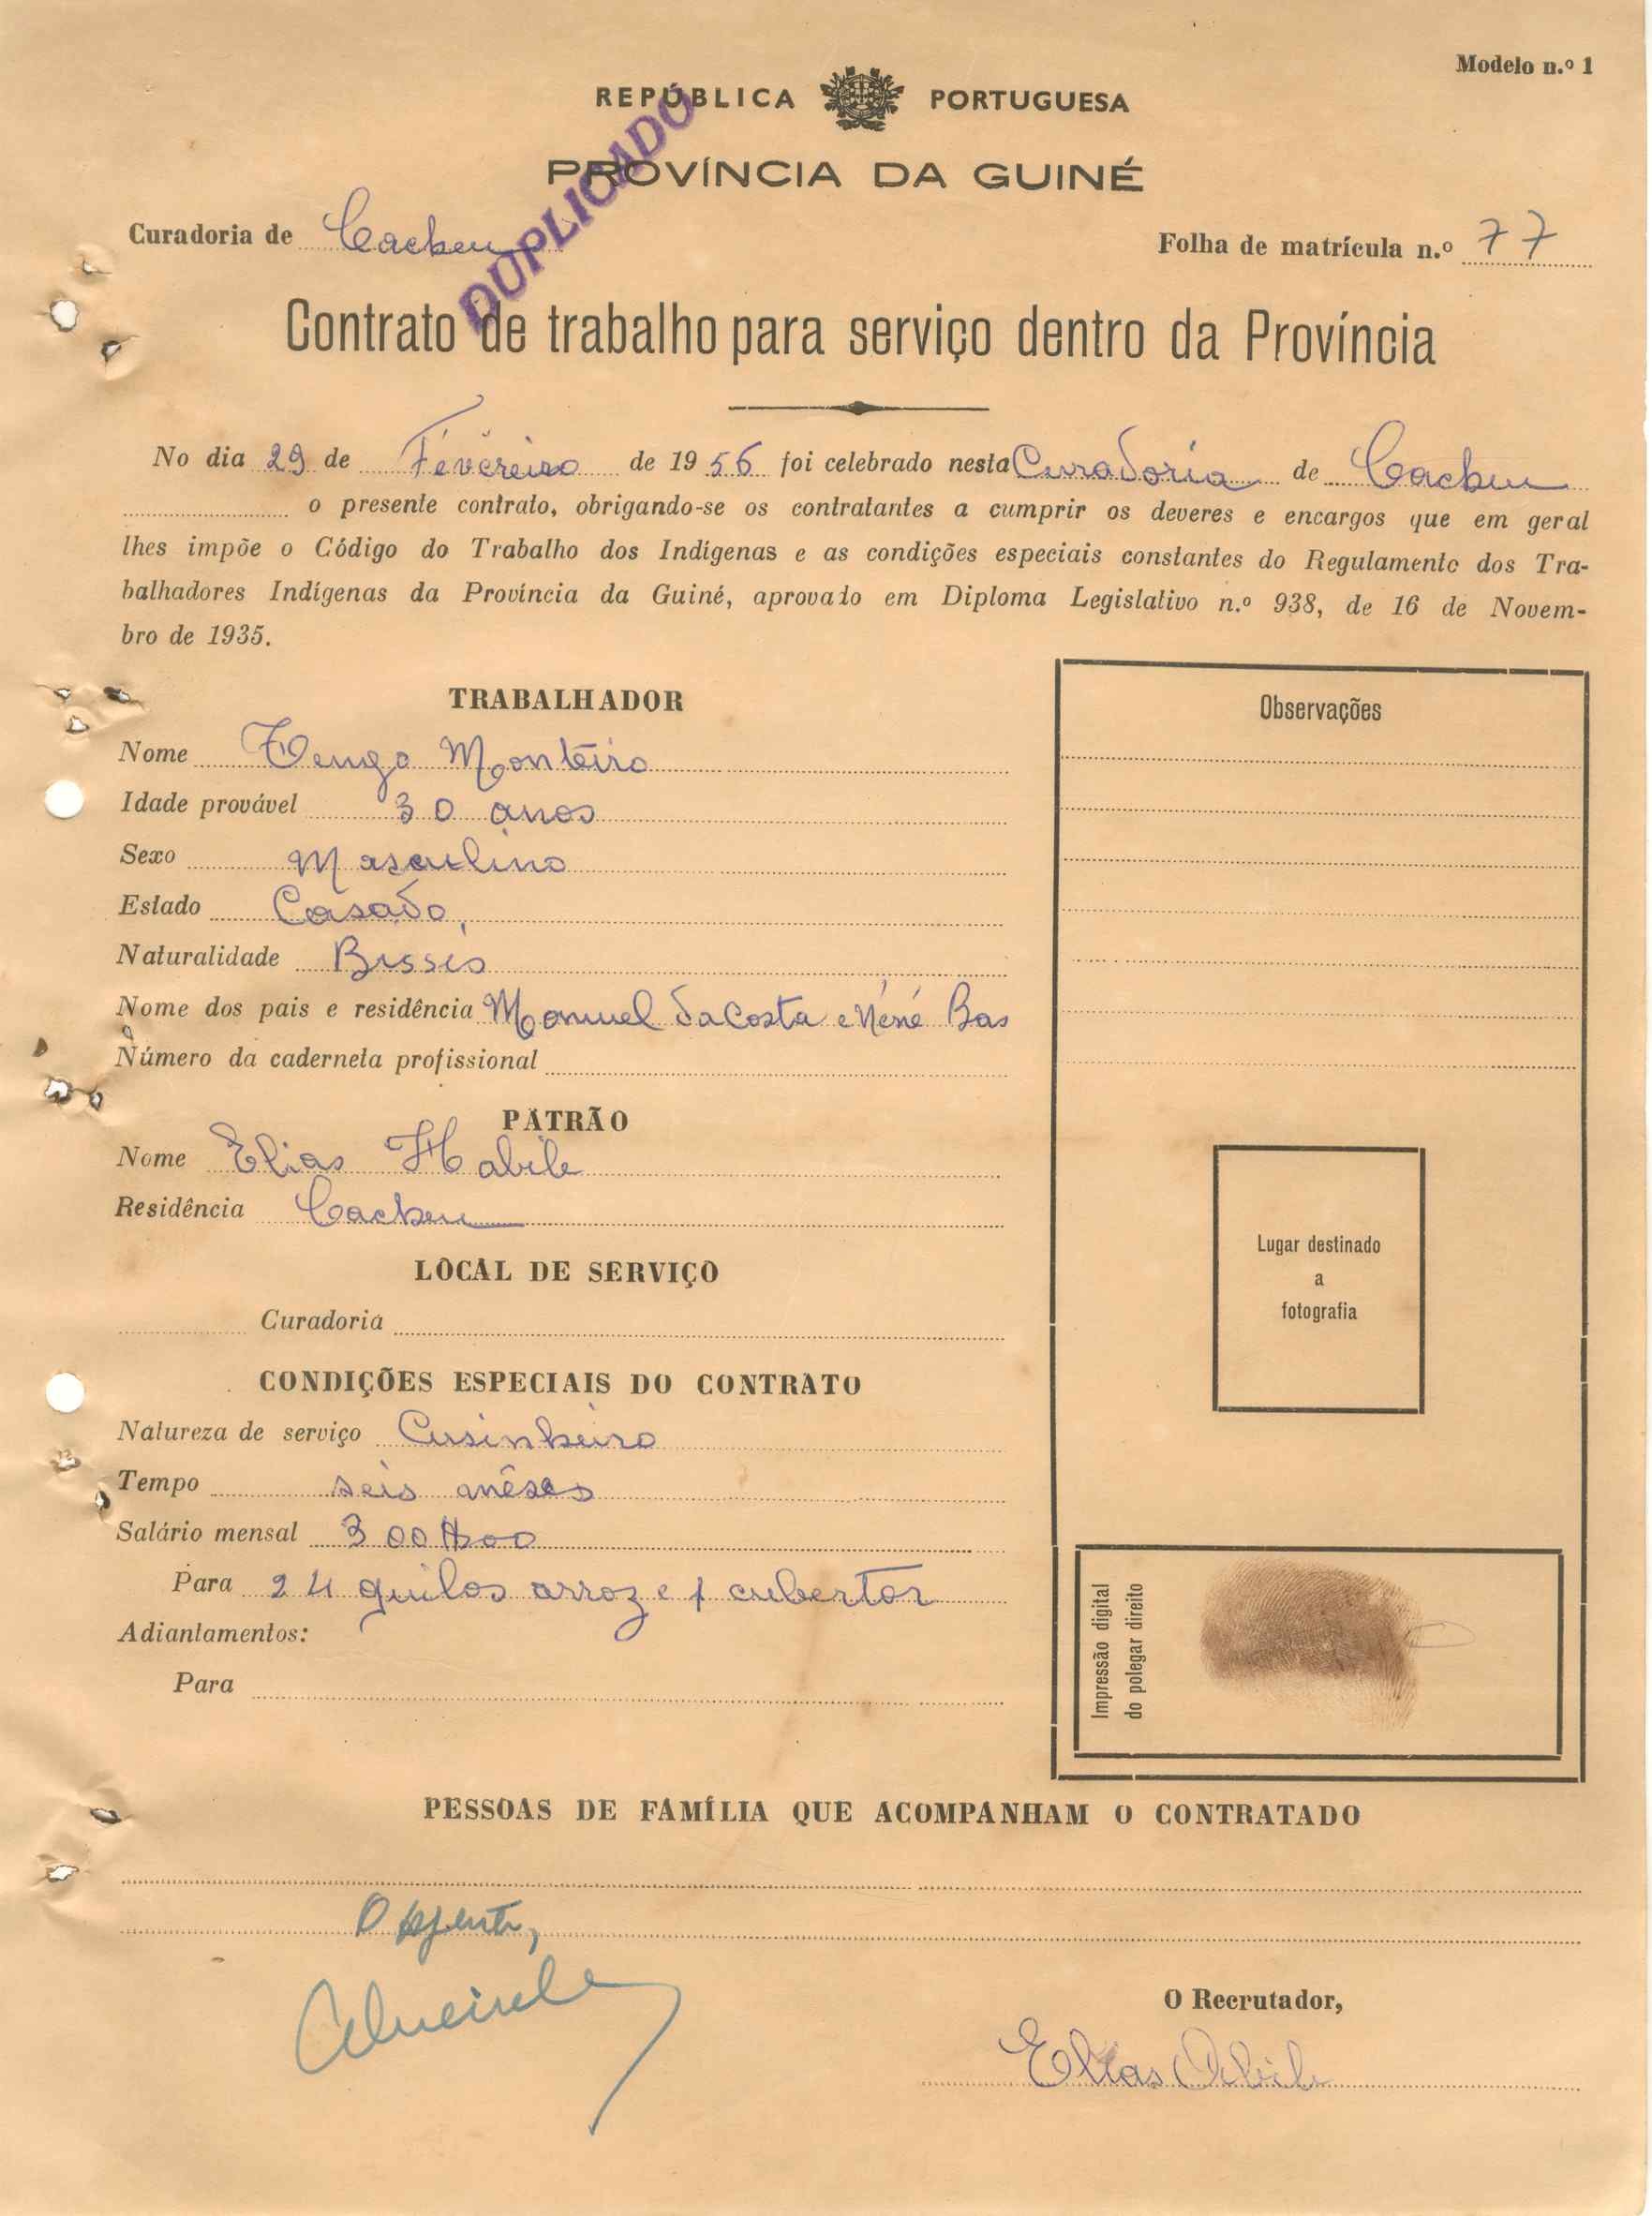 Modelo n.º 1
REPÚBLICA PORTUGUESA
DUPLICADO
PROVÍNCIA DA GUINÉ
Curadoria de Cacheu
Folha de matrícula n.º 77
Contrato de trabalho para serviço dentro da Província
No dia 29 de Févéreiro de 1956 foi celebrado nesta Curadoria de Cacheu
o presente contrato, obrigando-se os contratantes a cumprir os deveres e encargos que em geral
lhes impõe o Código do Trabalho dos Indígenas e as condições especiais constantes do Regulamento dos Tra-
balhadores Indígenas da Província da Guiné, aprovado em Diploma Legislativo n.º 938, de 16 de Novem-
bro de 1935.
TRABALHADOR
Nome Monteiro
Idade provável 30 anos
Sexo Masculino
Estado Casado,
Naturalidade
Nome dos pais e residência Manuel da Costa e Néné
Número da caderneta profissional
PATRÃO
Nome Elias Habib
Residência Cacheu
LOCAL DE SERVIÇO
Curadoria
CONDIÇÕES ESPECIAIS DO CONTRATO
Natureza de serviço Cusinheiro
Tempo seis mêses
Salário mensal 300$00
Para 24 quilos arroz e 1 cubertor
Adiantamentos:
Para
Observações
Lugar destinado
a
fotografia
Impressão digital
do polegar direito
PESSOAS DE FAMÍLIA QUE ACOMPANHAM O CONTRATADO
O Agente,
O Recrutador,
Elias